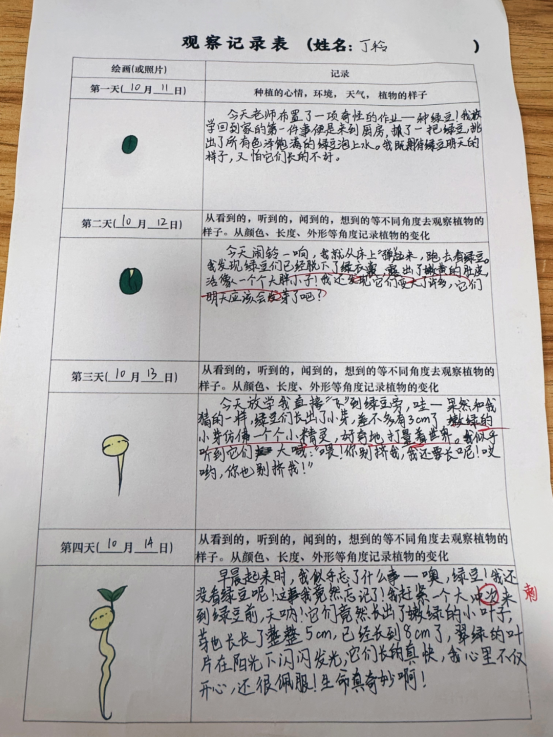 观察记录表 (姓名: 丁)
绘画(或照片)
记录
第一天(10月11日)
种植的心情，环境， 天气， 植物的样子
今天老师布置了一项奇怪的作业——种绿豆！我放
学回到家的第一件事便是来到厨房，抓了一把绿豆，挑
出了所有色泽饱满的绿豆泡上水。我既期待绿豆明天的
样子，又怕它们长的不好。
第二天(10月12日)
从看到的，听到的，闻到的，想到的等不同角度去观察植物的
样子。从颜色、长度、外形等角度记录植物的变化
今天闹铃一响，我就从床上“弹”起来，跑去看绿豆。
我发现绿豆们已经脱下了绿衣裳，露出了嫩黄的肚皮，
活像一个个大胖小子！我还发现它们变大了许多，它们
明天应该会发芽了吧？
第三天(10月13日)
从看到的，听到的，闻到的，想到的等不同角度去观察植物的
样子。从颜色、长度、外形等角度记录植物的变化
今天放学我直接“飞”到绿豆旁，哇——果然和我
猜的一样，绿豆们长出了小芽，差不多有3cm了，嫩绿的
小芽仿佛一个个小精灵，好奇地打量着世界。我似乎
听到它们大喊：“喂！你别挤我，我还要长呢！哎
哟，你也别挤我！”
第四天(10月14日)
从看到的，听到的，闻到的，想到的等不同角度去观察植物的
样子。从颜色、长度、外形等角度记录植物的变化
早晨起来时，我似乎忘了什么事——噢，绿豆！我还
没看绿豆呢！这事我竟然忘记了！我赶紧一个大冲次来
刺
到绿豆前，天呐！它们竟然长出了嫩绿的小叶子，
芽也长长了整整5cm，已经长到8cm了，翠绿的叶
片在阳光下闪闪发光，它们长的真快，我心里不仅
开心，还很佩服！生命真奇妙啊！